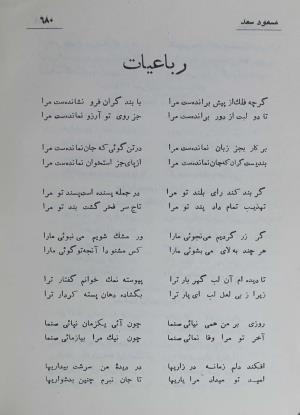 مسعود سعد
۶۸۰
رباعیات
گرچه فلک از پیش براندەست مرا با بند گران فرو نشاندەست مرا
تا دو لبت از دور براندەست مرا جز روی تو آرزو نماندەست مرا
بر کار بجز زبان نماندەست مرا در تن گوئی که جان نماندەست مرا
بندوست گران که جان نماندەست مرا از پای جز استخوان نماندەست مرا
گر بند کند رای بلند تو مرا در جمله پسنده است پسند تو مرا
تهذیب تمام داد پند تو مرا تاج سر فخر گشت بند تو مرا
گر زر گردیم می نجوئی مارا ور مشک شویم می نبوئی مارا
هر چند به لای می بشوئی مارا کس مشنو دا آنچه تو گوئی مارا
تا دیده‌ام آن لب گهر بار ترا پیوسته نمک خوانم گفتار ترا
زیرا ز بی لعل لب ای یار ترا بگشاده دهان پسته کردار ترا
روزی بر من همی نهائی صنما چون آئی یکزمان نپائی صنما
آخر تو مرا وفا نمائی صنما چون نیک مرا بیازمائی صنما
افکند دلم زمانه در زاریها در دیدهٔ من سرشت بیداریها
امید تو میداد مرا یاریها تا جان نبرم چنین بدشواریها